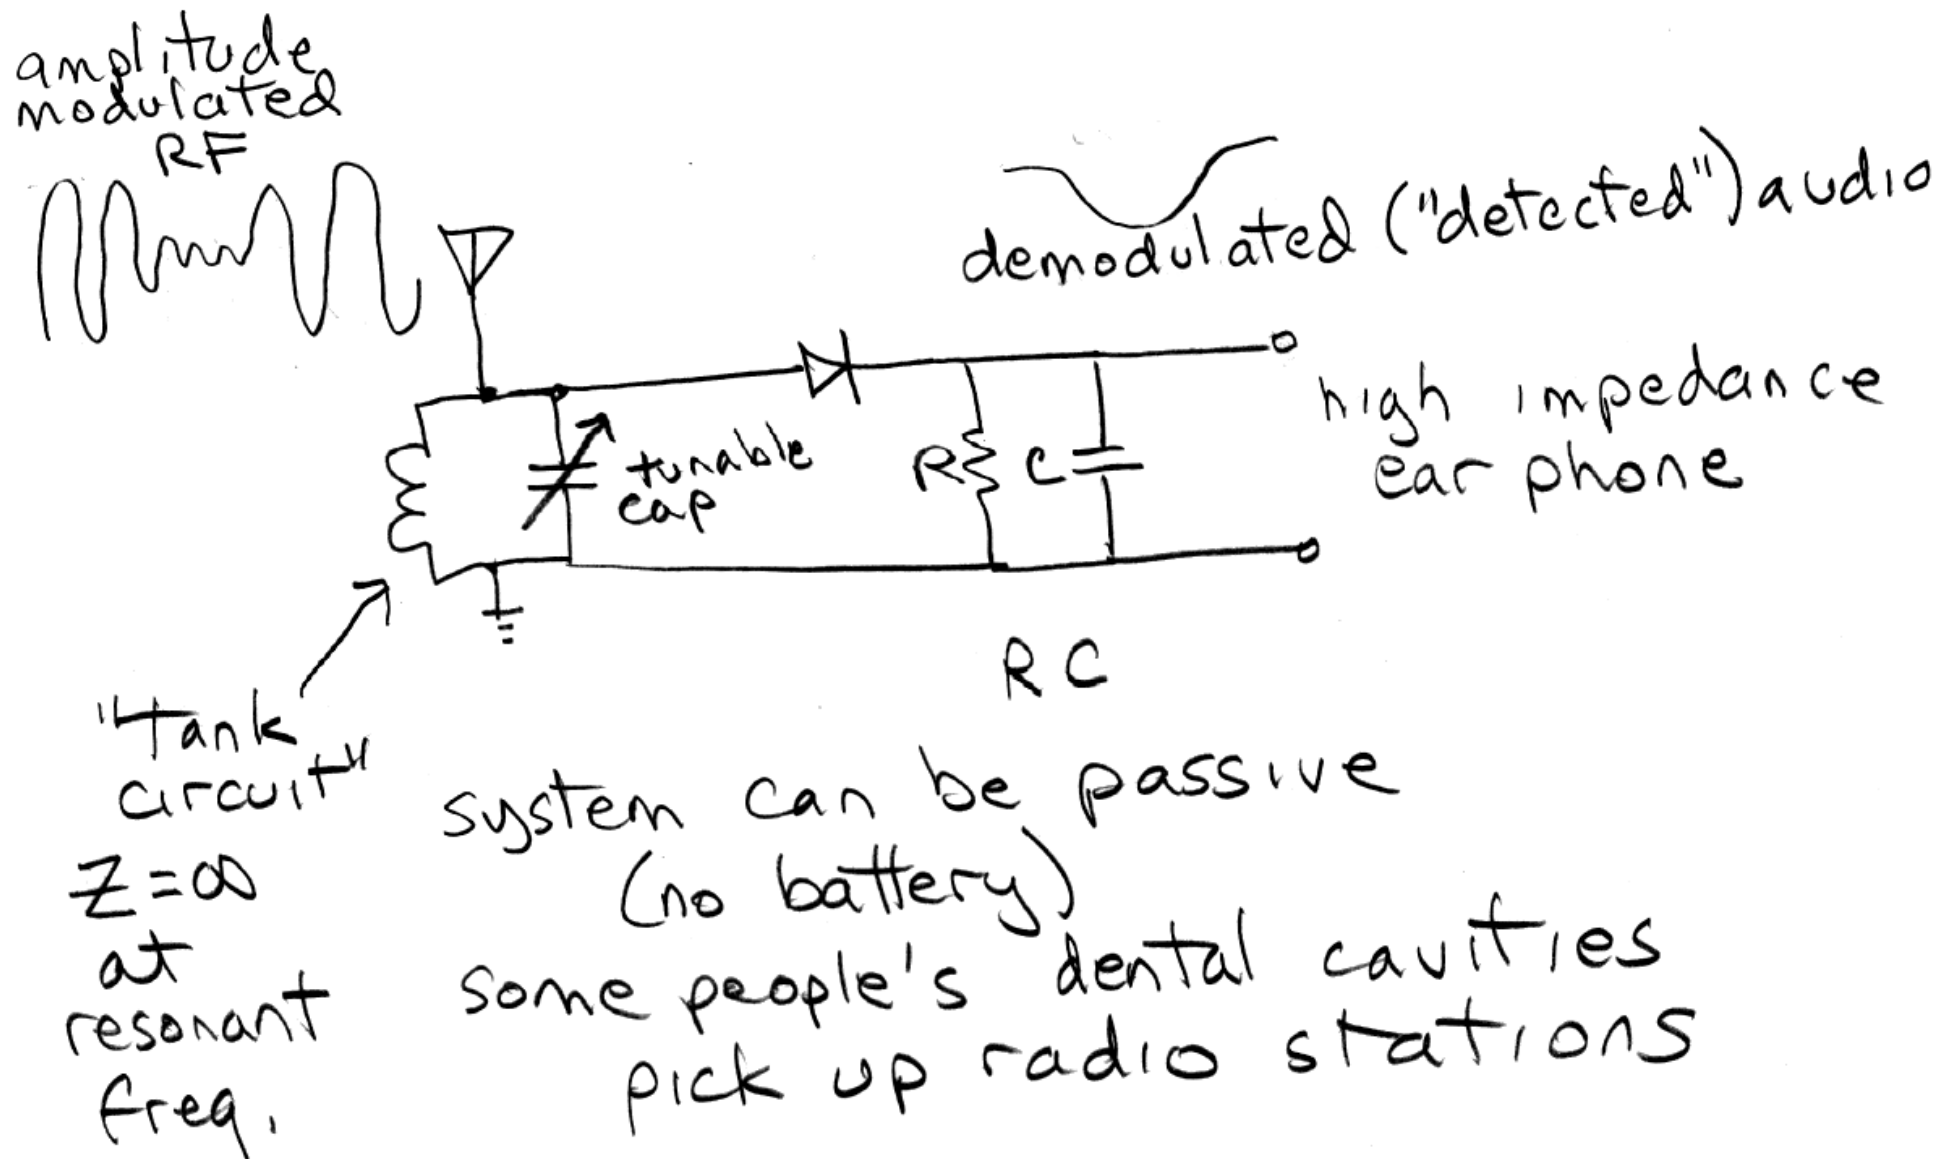 amplitude
modulated
RF
demodulated ("detected") audio
tunable
cap
R
C
high impedance
ear phone
"tank
circuit"
Z=∞
at
resonant
freq.
RC
system can be passive
(no battery)
some people's dental cavities
pick up radio stations